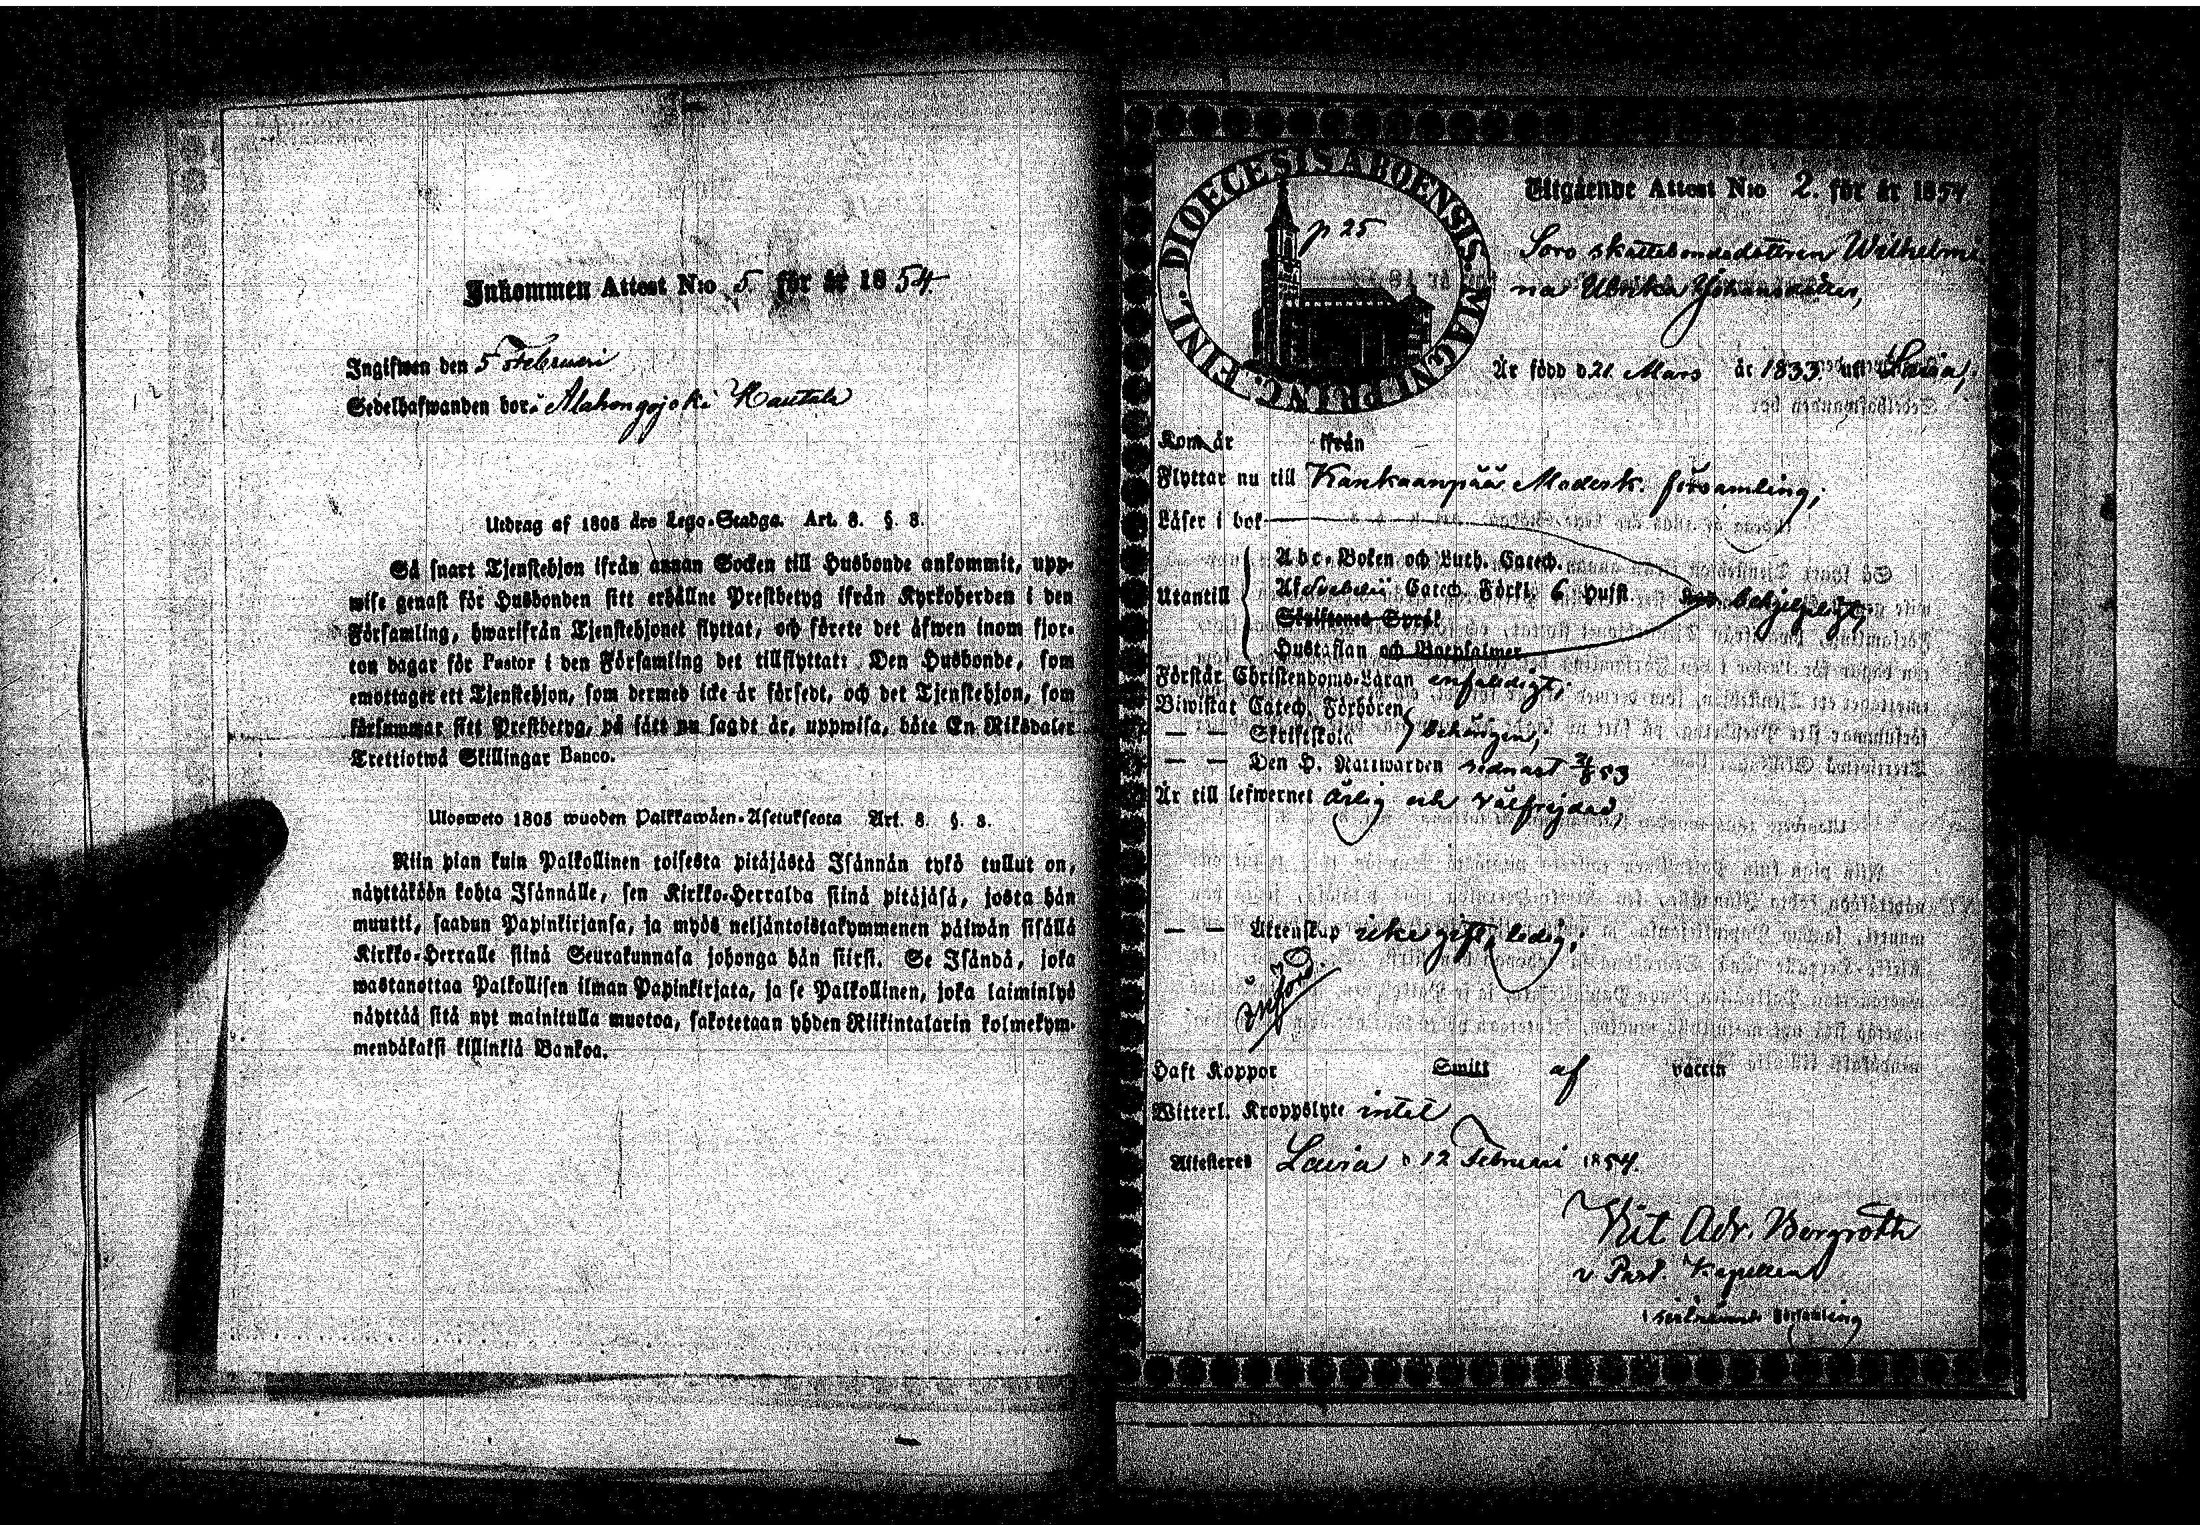 Inkommen Attest N:o 5 för år 1854.
Ingifwen den 5 Februari
Sedelhafwanden bor i Alahongojoki Hautala
Utdrag af 1805 års Lego-Stadga. Art. 8. §. 8.
Så snart Tjenstehjon ifrån annan Socken till Husbonde ankommit, upp-
wise genast för Husbonden sitt erhållne Prestbetyg ifrån Kyrkoherden i den
Församling, hwarifrån Tjenstehjonet flyttat, och förete det äfwen inom fjor-
ton dagar för Pastor i den Församling det tillflyttat: Den Husbonde, som
emottager ett Tjenstehjon, som dermed icke är försedt, och det Tjenstehjon, som
försummar sitt Prestbetyg, på sätt nu sagdt är, uppwisa, böte En Riksdaler
Trettiotwå Skillingar Banco.
Ulosweto 1805 wuoden Palkkawäen-Asetuksesta Art. 8. §. 8.
Niin pian kuin Palkollinen toisesta pitäjästä Isännän tykö tullut on,
näyttäköön kohta Isännälle, sen Kirkko-Herralda siinä pitäjäsä, josta hän
muutti, saadun Papinkirjansa, ja myös neljäntoistakymmenen päiwän sisällä
Kirkko-Herralle siinä Seurakunnasa johonga hän siirsi. Se Isändä, joka
wastanottaa Palkollisen ilman Papinkirjata, ja se Palkollinen, joka laiminlyö
näyttää sitä nyt mainitulla muotoa, sakotetaan yhden Riikintalarin kolmekym-
mendäkaksi killinkiä Bankoa.
FINL. DIOECESIS ABOENSIS. MAGNI PRINC.
p 25
Utgående Attest N:o 2. för år 1854.
Soro skattebondedotteren Wilhelmi
na Ulrika Johansdotter,
Är född d 21. Mars år 1833. uti Lavia,
Kom år ifrån
Flyttar nu till Kankaanpää Moderk. församling,
Läser i bok
Abc-Boken och Luth. Catech.
Utantill Af Svebelii Catech. Förkl. 6 Hufst. behjelpligt,
Skriftenes Språk
Hustaflan och Botpsalmer
Förstår Christendoms-Läran enfaldigt;
Biwistat Catech. Förhören
— — Skriftskola behörigen;
— — Den H. Nattwarden sednast 53
Är till lefwernet ärlig och välfrejdad,
— — Äktenskap icke gift, ledig;
Införd.
Haft Koppor Smitt af vaccin
Witterl. Kroppslyte intet
Attesteres Lavia d 12 Februari 1854.
Vit Adr. Bergroth
v Past. Kapellan
församling